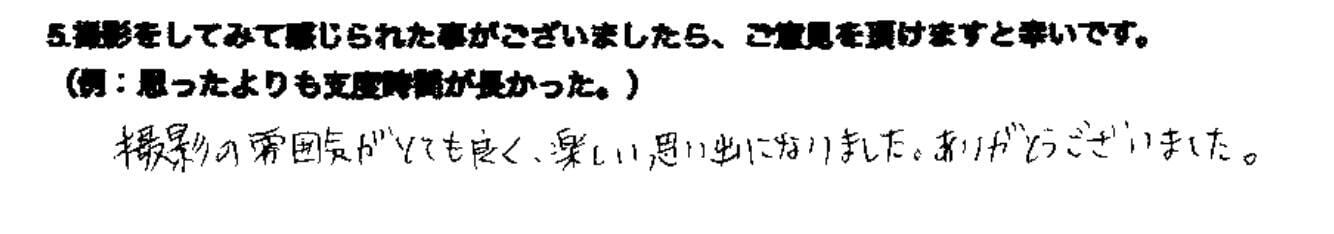 5.撮影をしてみて感じられた事がございましたら、ご意見を頂けますと幸いです。
（例：思ったよりも支度時間が長かった。）
撮影の雰囲気がとても良く、楽しい思い出になりました。ありがとうございました。